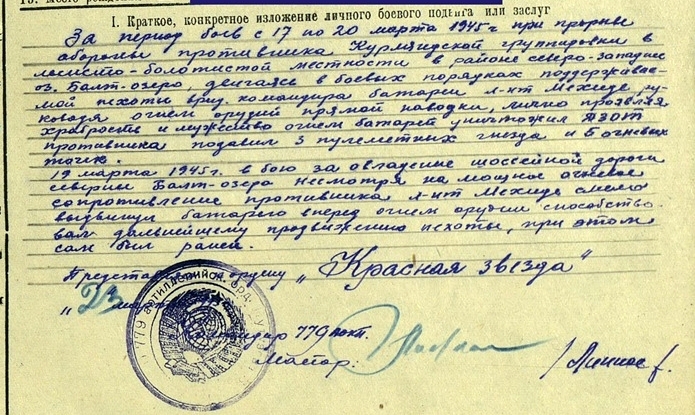 I. Краткое, конкретное изложение личного боевого подвига или заслуг
За период боев с 17 по 20 марта 1945г при прорыве
обороны противника Курляндской группировки в
лесисто-болотистой местности в районе северо-западнее
оз. Балт-озеро, двигаясь в боевых порядках поддерживае-
мой пехоты врид. командира батареи л-нт Мехиде, ру-
ководя огнем орудий прямой наводки, лично проявляя
храбрость и мужество огнем батареи уничтожил ДЗОТ
противника подавил 3 пулеметных гнезда и 5 огневых
точек.
19 марта 1945г. в бою за овладение шоссейной дороги
севернее Балт-озеро несмотря на мощное огневое
сопротивление противника л-нт Мехиде смело
выдвинул батарею вперед огнем орудий способство-
вал дальнейшему продвижению пехоты, при этом
сам был ранен.
Представляю к ордену „Красная звезда“
„23 марта
779 артиллерийск.
Командир 779
Майор: